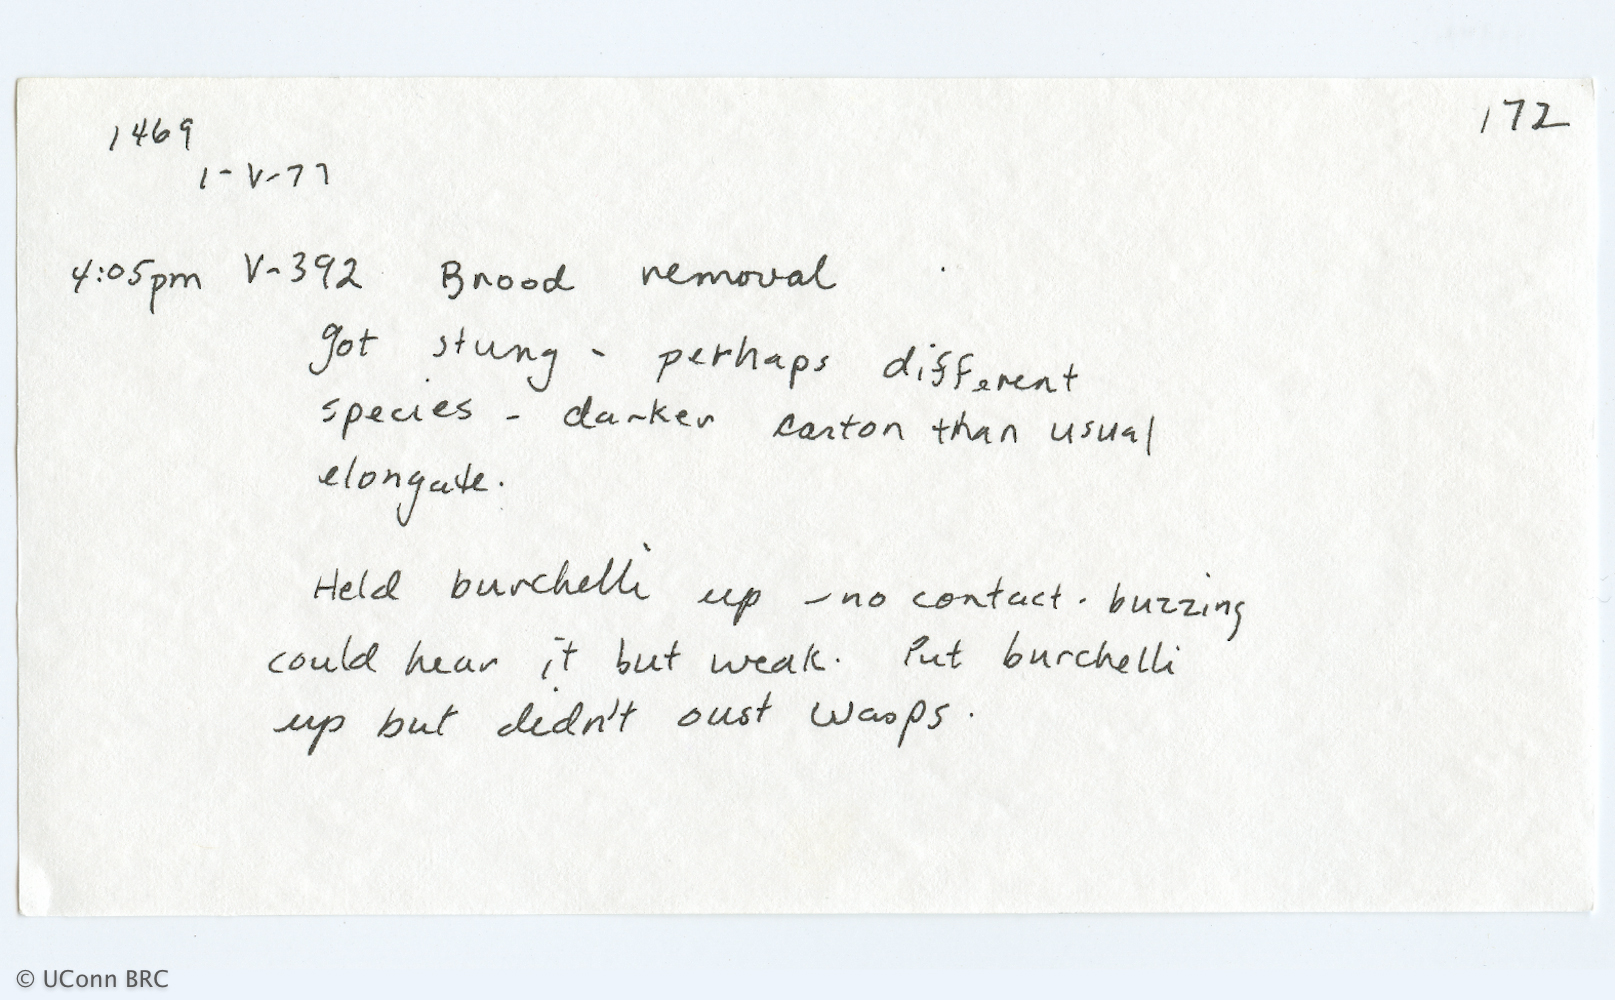 1469
172
1-V-77
4:05pm V-392 Brood removal
got stung - perhaps different
species - darker carton than usual
elongate.
Held burchelli up - no contact. buzzing
could hear it but weak. Put burchelli
up but didn't oust wasps.
© UConn BRC